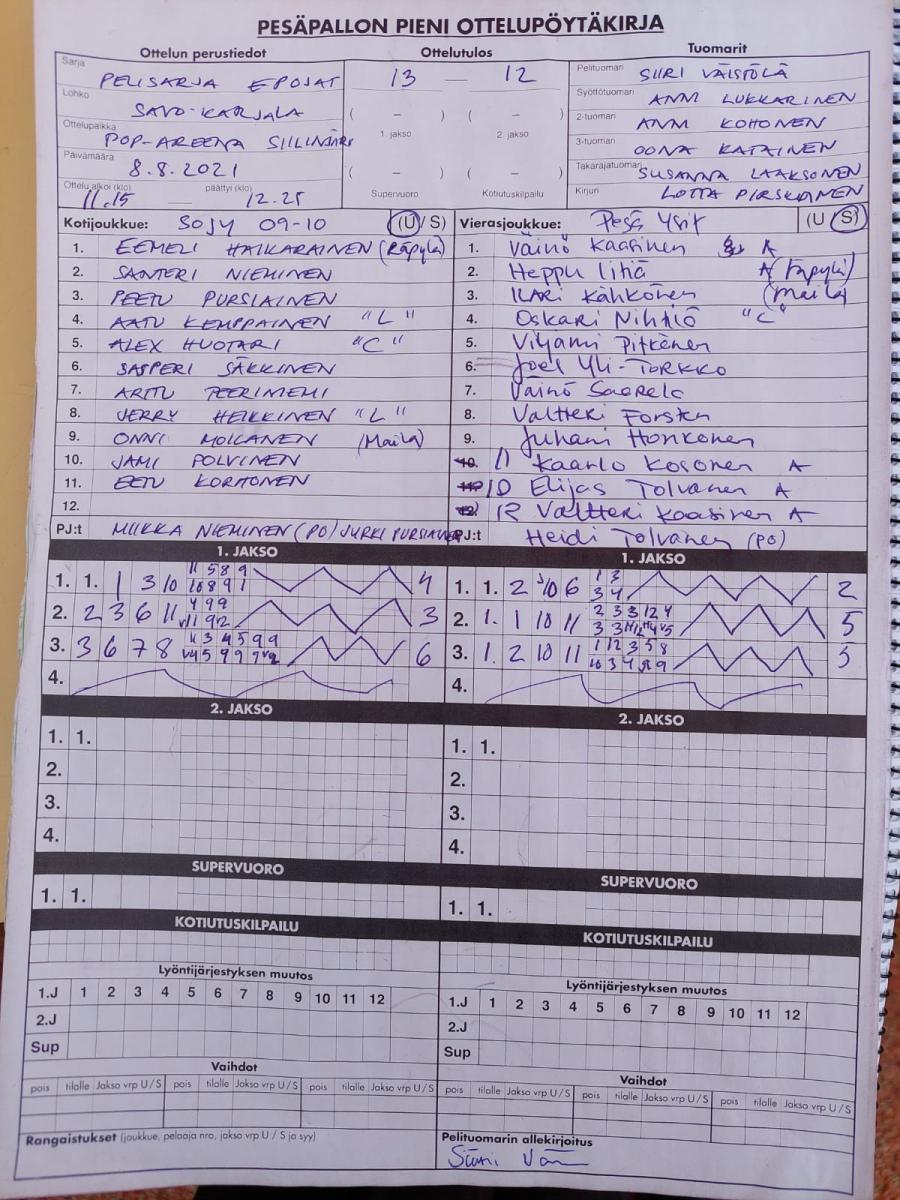 PESÄPALLON PIENI OTTELUPÖYTÄKIRJA
Ottelun perustiedot Ottelutulos Tuomarit
Sarja PELISARJA EPOJAT 13 – 12 Pelituomari SIIRI VÄISTÖLÄ
Lohko SAVO-KARJALA ( – ) ( – ) Syöttötuomari ANNI LUKKARINEN
Ottelupaikka POP-AREENA SIILINJÄRVI 1. jakso 2. jakso 2-tuomari ANNI KOHONEN
Päivämäärä 8.8.2021 ( – ) ( – ) 3-tuomari OONA KATAINEN
Ottelu alkoi (klo) 11.15 päättyi (klo) 12.25 Supervuoro Kotiutuskilpailu Takarajatuomari SUSANNA LAAKSONEN
Kirjuri LOTTA PIRSKANEN
Kotijoukkue: SOJY 09-10 (U / S) Vierasjoukkue: Pesä Ysit (U / S)
1. EEMELI HAIKARAINEN (Räpylä) 1. Väinö Kaasinen A
2. SANTERI NIEMINEN 2. Heppu Iitiä A (räpylä)
3. PEETU PURSIAINEN 3. Ilari Kähkönen (Maila)
4. AATU KEMPPAINEN "L" 4. Oskari Nihtilö "C"
5. ALEX HUOTARI "C" 5. Viljami Pitkänen
6. SASPERI SÄKKINEN 6. Joel Yli-Torkko
7. ARTTU PEERINIEMI 7. Väinö Saarela
8. JERRY HEIKKINEN "L" 8. Valtteri Forsten
9. ONNI MOILANEN (Maila) 9. Juhani Honkonen
10. JAMI POLVINEN 10. 11 Kaarlo Kosonen A
11. EETU KORHONEN 10 Elijas Tolvanen A
12. 12 Valtteri Kaasinen A
PJ:t MIIKKA NIEMINEN (PO) JYRKI PURSIAINEN PJ:t Heidi Tolvanen (PO)
1. JAKSO 1. JAKSO
1. 1. 1 3 10 11 5 8 9 4 1. 1. 2 10 6 1 3 2
10 8 9 1 3 4
2. 2 3 6 11 4 9 9 3 2. 1. 1 10 11 2 3 3 12 4 5
3. 3 6 7 8 11 3 4 5 9 9 6 3. 1. 2 10 11 1 12 3 5 8 5
4. 4.
2. JAKSO 2. JAKSO
1. 1. 1. 1.
2. 2.
3. 3.
4. 4.
SUPERVUORO SUPERVUORO
1. 1. 1. 1.
KOTIUTUSKILPAILU KOTIUTUSKILPAILU
Lyöntijärjestyksen muutos Lyöntijärjestyksen muutos
1.J 1 2 3 4 5 6 7 8 9 10 11 12 1.J 1 2 3 4 5 6 7 8 9 10 11 12
2.J 2.J
Sup Sup
Vaihdot Vaihdot
pois tilalle Jakso vrp U / S pois tilalle Jakso vrp U / S pois tilalle Jakso vrp U / S pois tilalle Jakso vrp U / S pois tilalle Jakso vrp U / S pois tilalle Jakso vrp U / S
Rangaistukset (joukkue, pelaaja nro, jakso vrp U / S ja syy) Pelituomarin allekirjoitus
Siiri